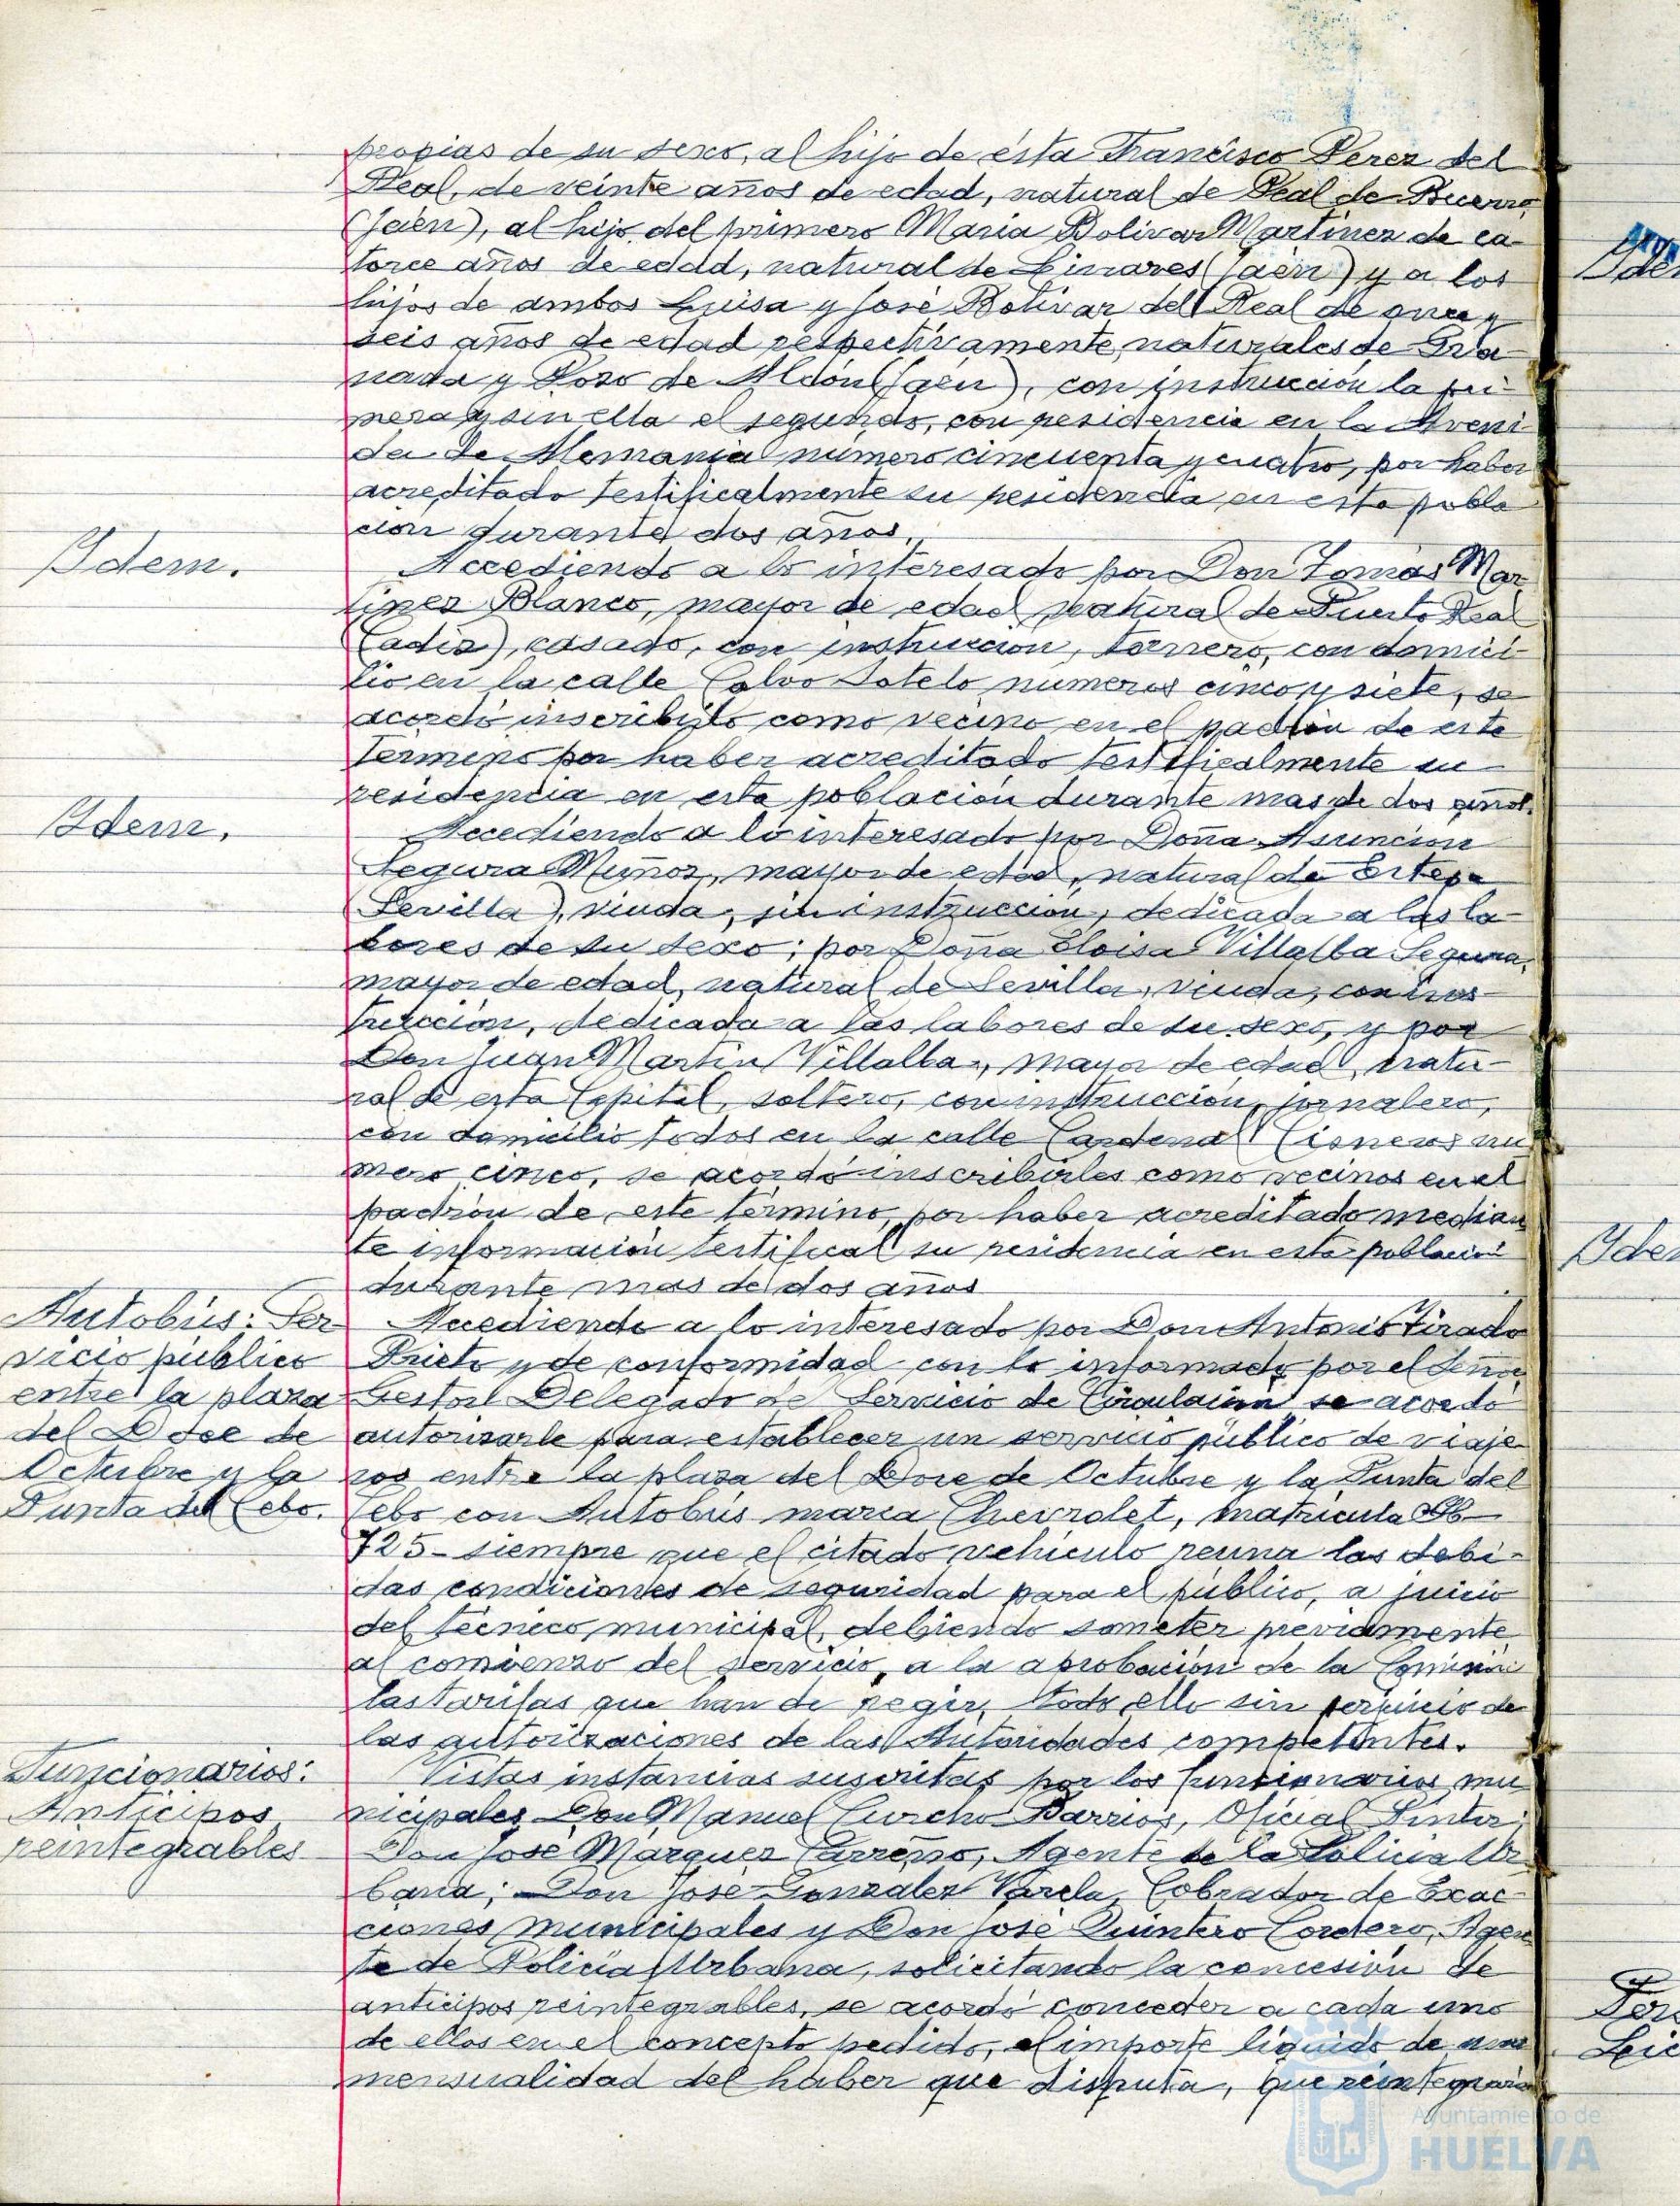 propias de su sexo, al hijo de ésta Francisco Perez del
Real, de veinte años de edad, natural de Peal de Becerro
(Jaén), al hijo del primero Maria Bolivar Martinez de ca-
torce años de edad, natural de Linares (Jaén) y a los
hijos de ambos Luisa y José Bolivar del Real de once y
seis años de edad respectivamente, naturales de Gra-
nada y Pozo de Alcón (Jaén), con instrucción la pri-
mera y sin ella el segundo, con residencia en la Aveni-
da de Alemania número cincuenta y cuatro, por haber
acreditado testificalmente su residencia en esta pobla-
ción durante dos años.
Idem.
Accediendo a lo interesado por Don Tomás Mar-
tinez Blanco, mayor de edad, natural de Puerto Real
(Cadiz), casado, con instruccion, tornero, con domici-
lio en la calle Calvo Sotelo numeros cinco y siete, se
acordó inscribirlo como vecino en el padrón de este
termino por haber acreditado testificalmente su
residencia en esta población durante mas de dos años.
Idem.
Accediendo a lo interesado por Doña Asuncion
Segura Muñoz, mayor de edad, natural de Estepa
(Sevilla), viuda, sin instrucción, dedicada a las la-
bores de su sexo; por Doña Eloisa Villalba Segura,
mayor de edad, natural de Sevilla, viuda, con ins-
trucción, dedicada a las labores de su sexo, y por
Don Juan Martin Villalba, mayor de edad, natu-
ral de esta Capital, soltero, con instrucción, jornalero,
con domicilio todos en la calle Cardenal Cisneros nú
mero cinco, se acordó inscribirles como vecinos en el
padrón de este término, por haber acreditado median
te información testifical su residencia en esta poblacion
durante mas de dos años
Autobús: Ser
vicio público
entre la plaza
del Doce de
Octubre y la
Punta del Cebo.
Accediendo a lo interesado por Don Antonio Tirado
Prieto y de conformidad con lo informado por el Señor
Gestor Delegado de Servicio de Circulación se acordó
autorizarle para establecer un servicio público de viaje-
ros entre la plaza del Doce de Octubre y la Punta del
Cebo con Autobús marca Chevrolet, matricula
725- siempre que el citado vehiculo reuna las debi-
das condiciones de seguridad para el público, a juicio
del técnico municipal, debiendo someter previamente
al comienzo del servicio, a la aprobación de la Comisión
las tarifas que han de regir, todo ello sin perjuicio de
las autorizaciones de las Autoridades competentes.
Funcionarios:
Anticipos
reintegrables
Vistas instancias suscritas por los funcionarios mu
nicipales Don Manuel Curcho Barrios, Oficial Pintor;
Don José Marquez Carreño, Agente de la Policia Ur
bana; Don José Gonzalez Varela, Cobrador de Exac-
ciones municipales y Don José Quintero Cordero, Agen
te de Policia Urbana, solicitando la concesión de
anticipos reintegrables, se acordó conceder a cada uno
de ellos en el concepto pedido, el importe liquido de una
mensualidad del haber que disfruta, que reintegrará
Ayuntamiento de
HUELVA